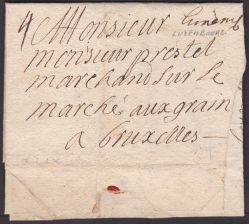 A Monsieur
LUXEMBOURG
monsieur prestel
marchand sur le
marché aux grain
a bruxelles